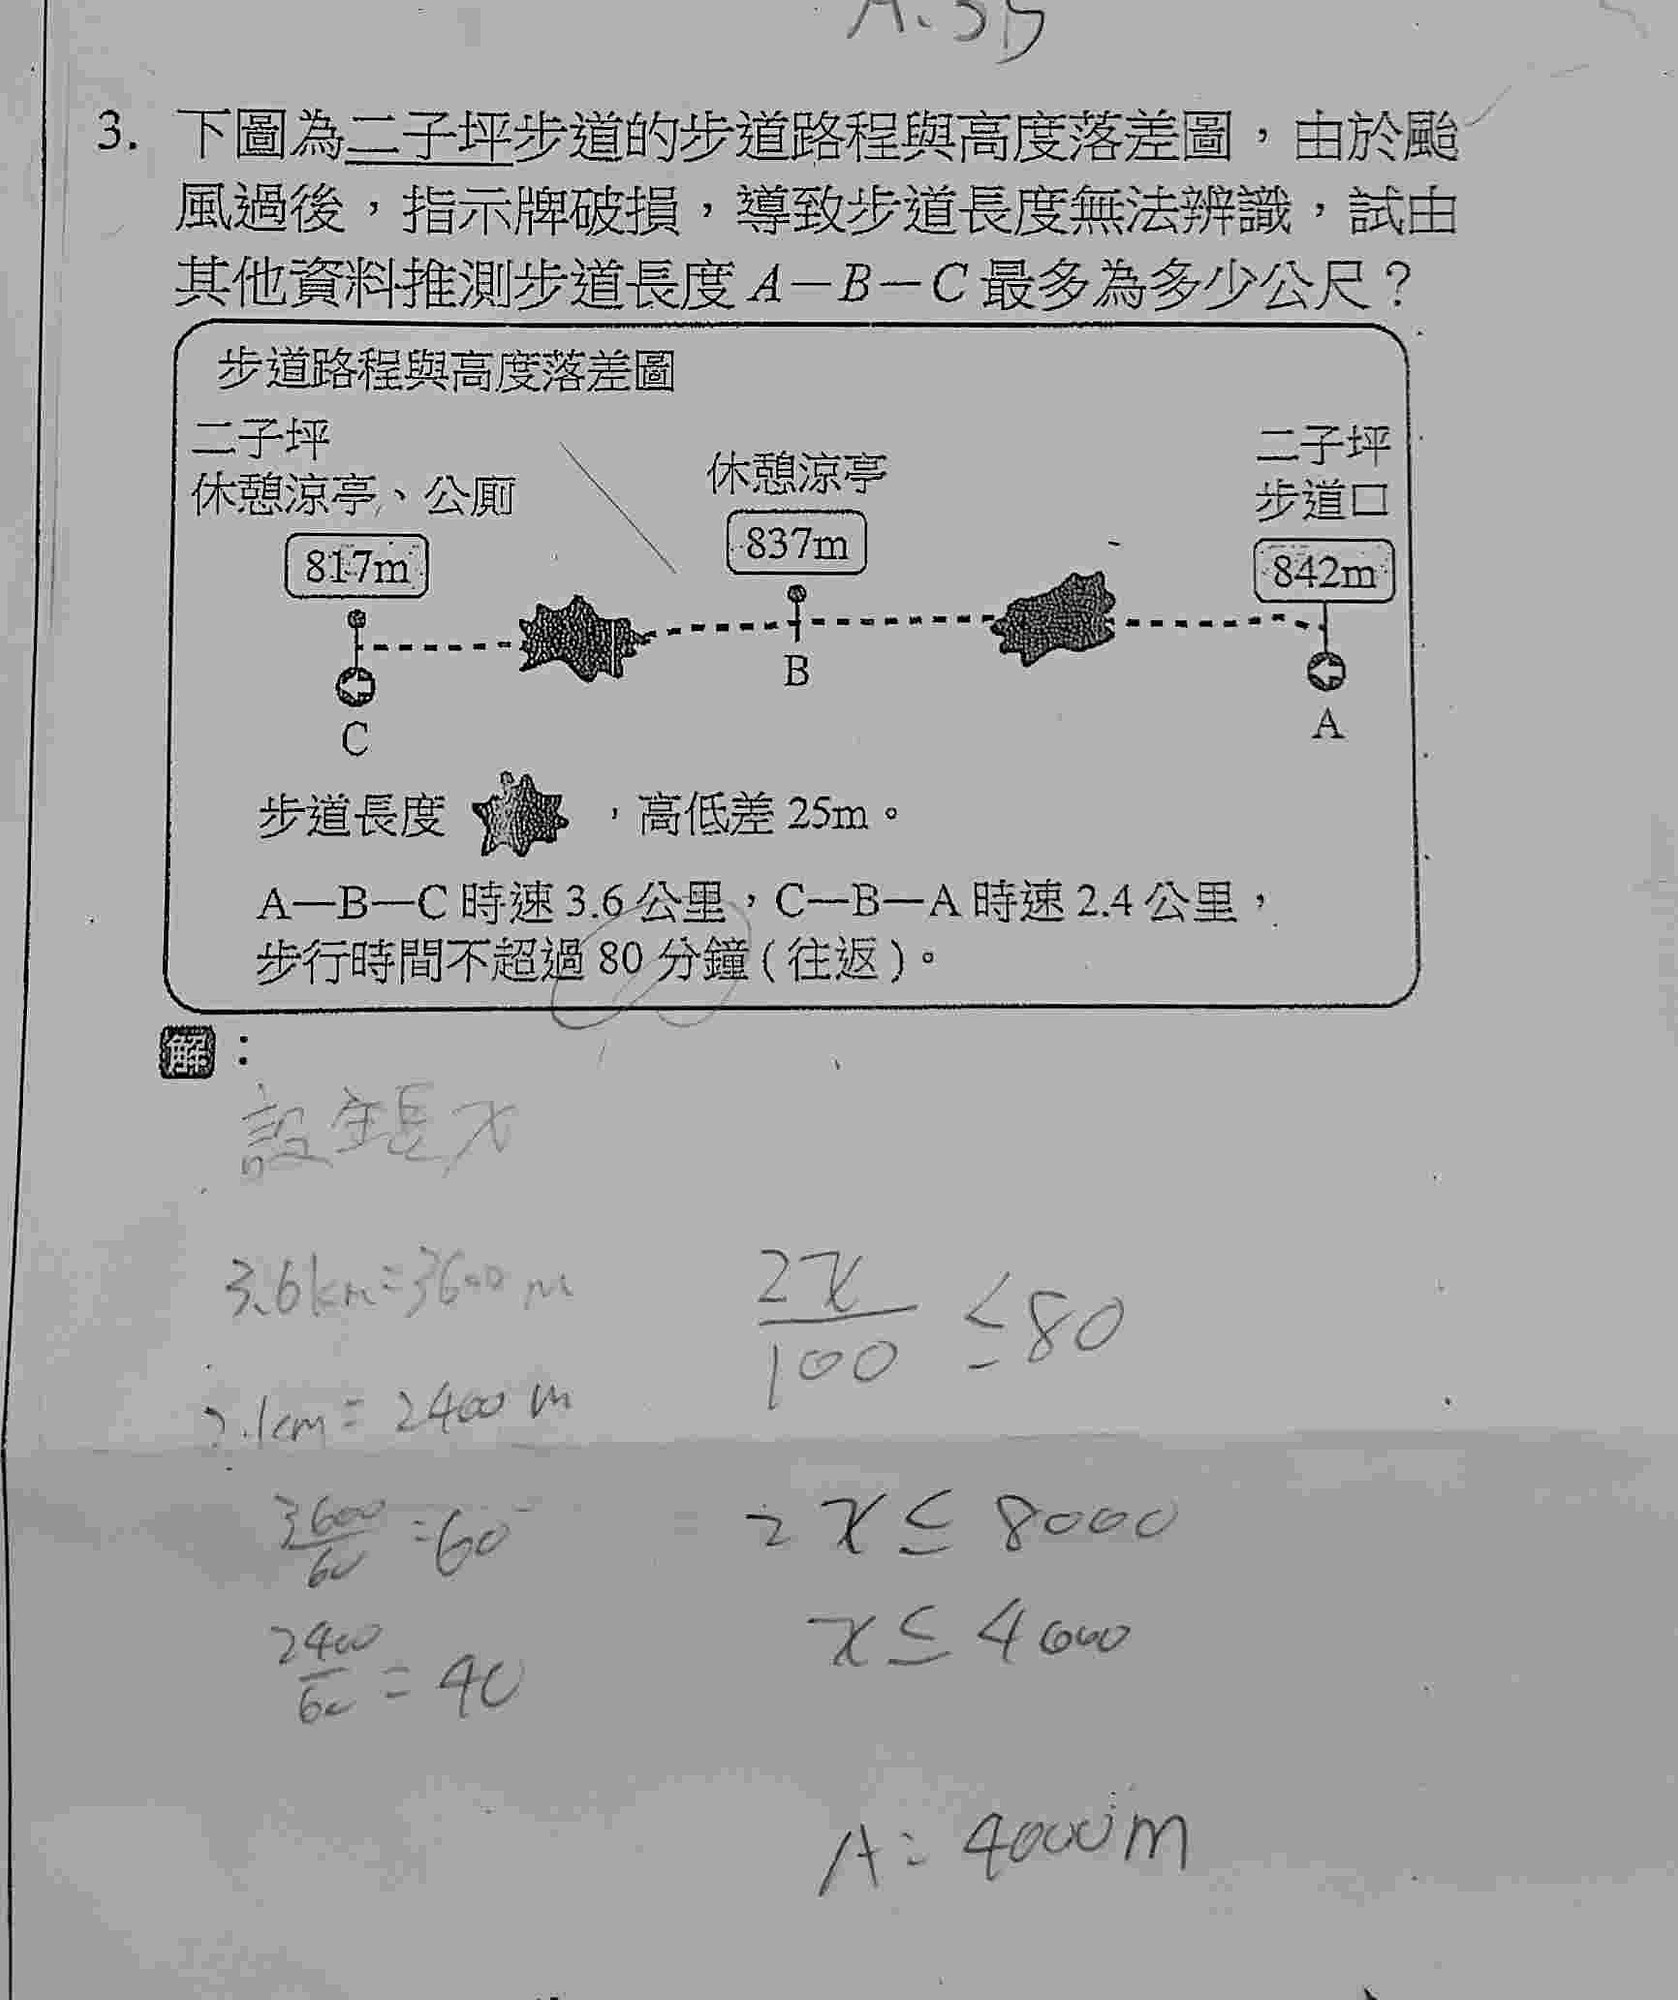 3. 下圖為二子坪步道的步道路程與高度落差圖，由於颱
風過後，指示牌破損，導致步道長度無法辨識，試由
其他資料推測步道長度 A－B－C 最多為多少公尺？
步道路程與高度落差圖
二子坪
休憩涼亭、公廁
817m
休憩涼亭
837m
二子坪
步道口
842m
B
C
A
步道長度 ，高低差 25m。
A—B—C 時速 3.6 公里，C—B—A 時速 2.4 公里，
步行時間不超過 80 分鐘 (往返)。
解：
設全長x
3.6km=3600m
km=2400m
3600/60=60
2400/60=40
2x/100≤80
2x≤8000
x≤4000
A:4000m